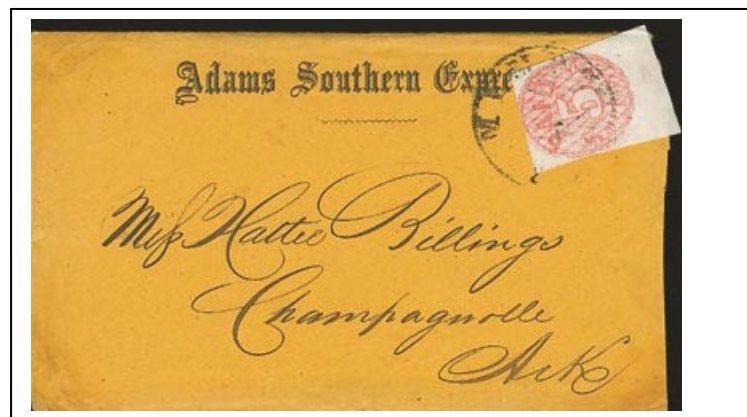 Adams Southern Expre
5
Miſs Hattie Billings
Champagnolle
Arks